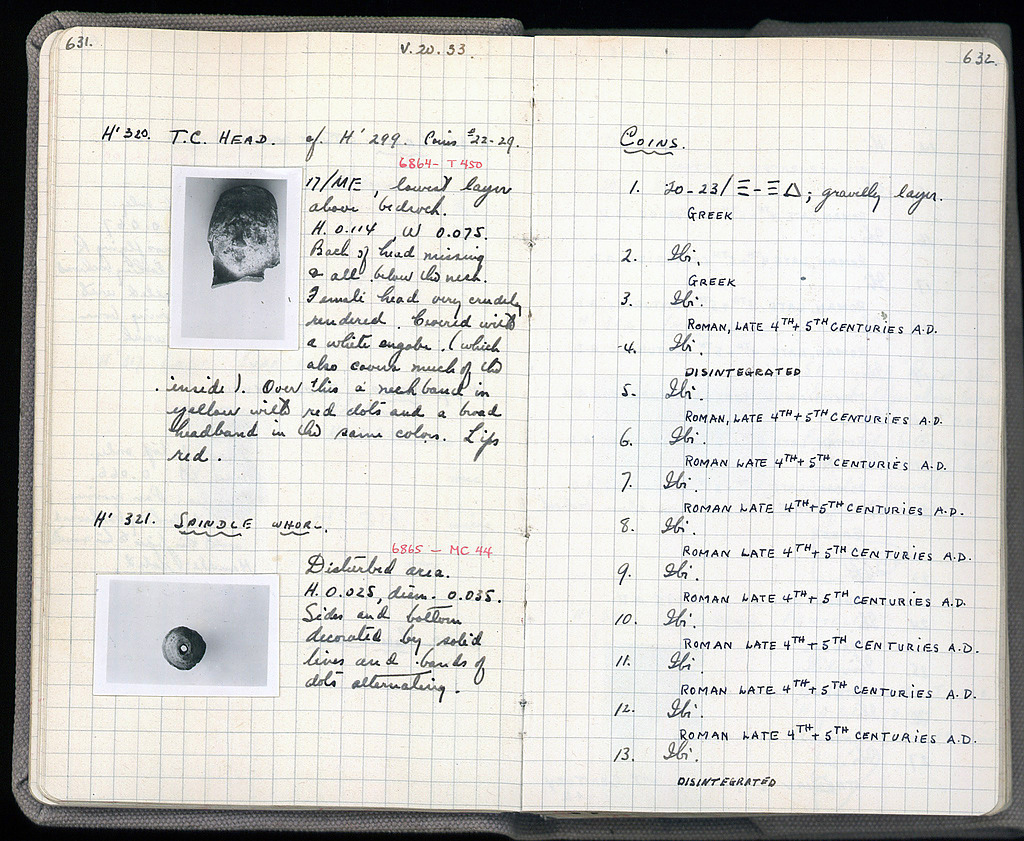 631.
V. 20. 33
H' 320. T.C. HEAD. cf. H' 299. Coins #22-29.
6864 - T 450
17/ME, lowest layer
above bedrock.
H. 0.114, W 0.075.
Back of head missing
& all below the neck.
Female head very crudely
rendered. Covered with
a white engobe. (which
also covers much of the
inside). Over this a neckband in
yellow with red dots and a broad
headband in the same colors. Lips
red.
H' 321. SPINDLE WHORL.
6865 - MC 44
Disturbed area.
H. 0.025, diam. 0.035.
Sides and bottom
decorated by solid
lines and bands of
dots alternating.
632.
COINS.
1. 20-23/Ξ-ΞΔ; gravelly layer.
GREEK
2. Ibi.
GREEK
3. Ibi.
ROMAN, LATE 4TH + 5TH CENTURIES A.D.
4. Ibi.
DISINTEGRATED
5. Ibi.
ROMAN, LATE 4TH + 5TH CENTURIES A.D.
6. Ibi.
ROMAN LATE 4TH + 5TH CENTURIES A.D.
7. Ibi.
ROMAN LATE 4TH + 5TH CENTURIES A.D.
8. Ibi.
ROMAN LATE 4TH + 5TH CENTURIES A.D.
9. Ibi.
ROMAN LATE 4TH + 5TH CENTURIES A.D.
10. Ibi.
ROMAN LATE 4TH + 5TH CENTURIES A.D.
11. Ibi.
ROMAN LATE 4TH + 5TH CENTURIES A.D.
12. Ibi.
ROMAN LATE 4TH + 5TH CENTURIES A.D.
13. Ibi.
DISINTEGRATED